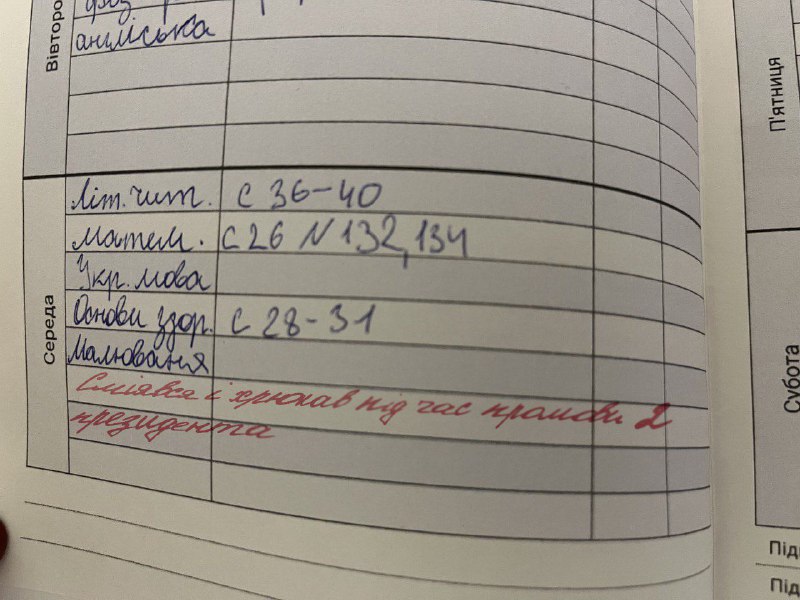 Вівторо
англійська
П'ятниця
Середа
Літ. чит. с 36-40
Матем. с 26 N 132, 134
Укр. мова
Основи здор. с 28-31
Малюваня
Сміявся і хрюкав під час промови 2
президента
Субота
Підп
Підп